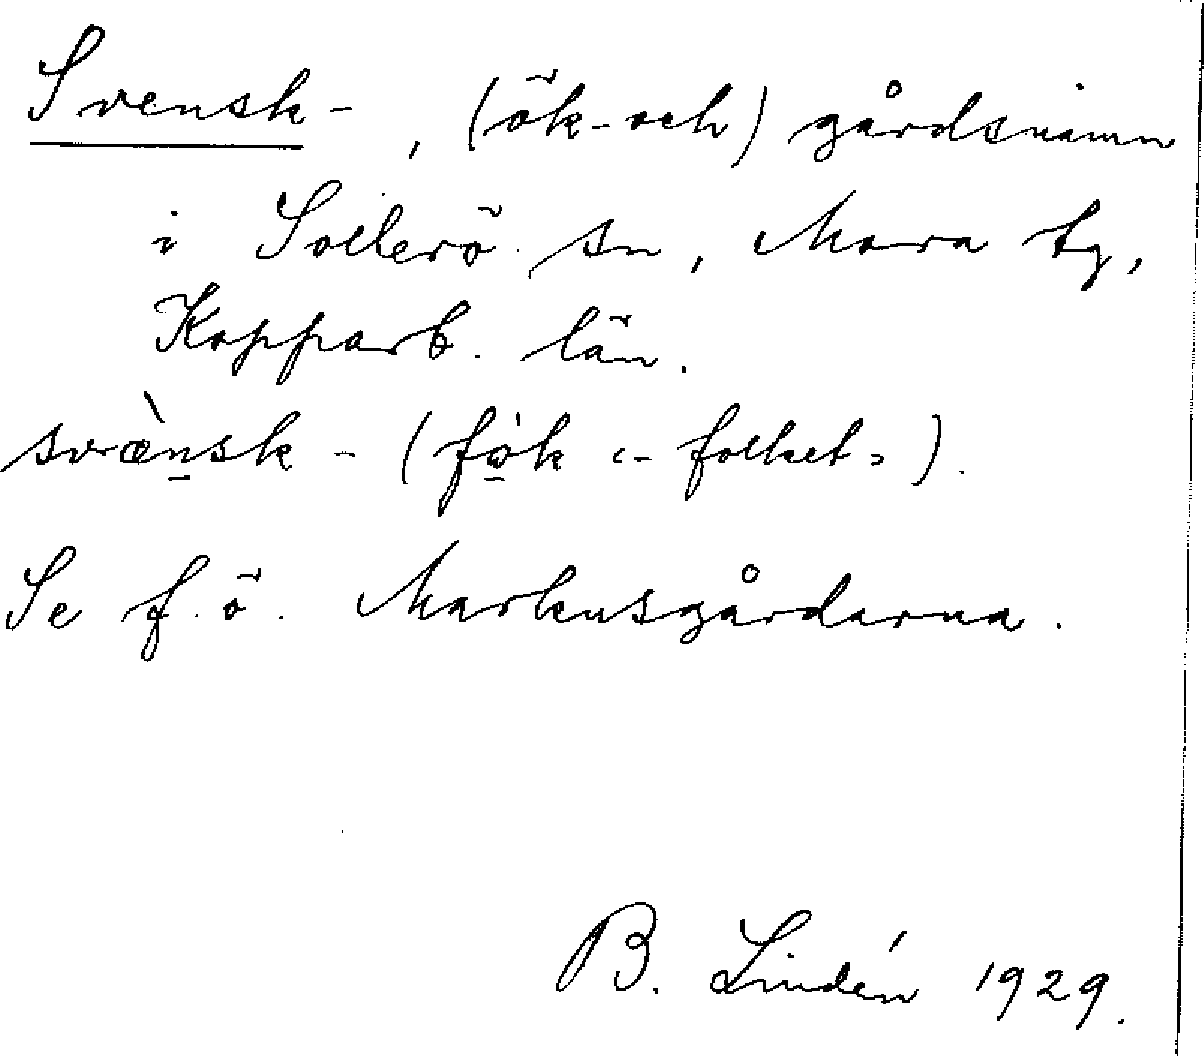 Svensk-, (ök- och) gårdsnamn
i Sollerö sn, Mora tg,
Kopparb. län.
svæ̀nsk- (fòk «-folket»).
Se f. ö. Markusgårdarna.
B. Lindén 1929.